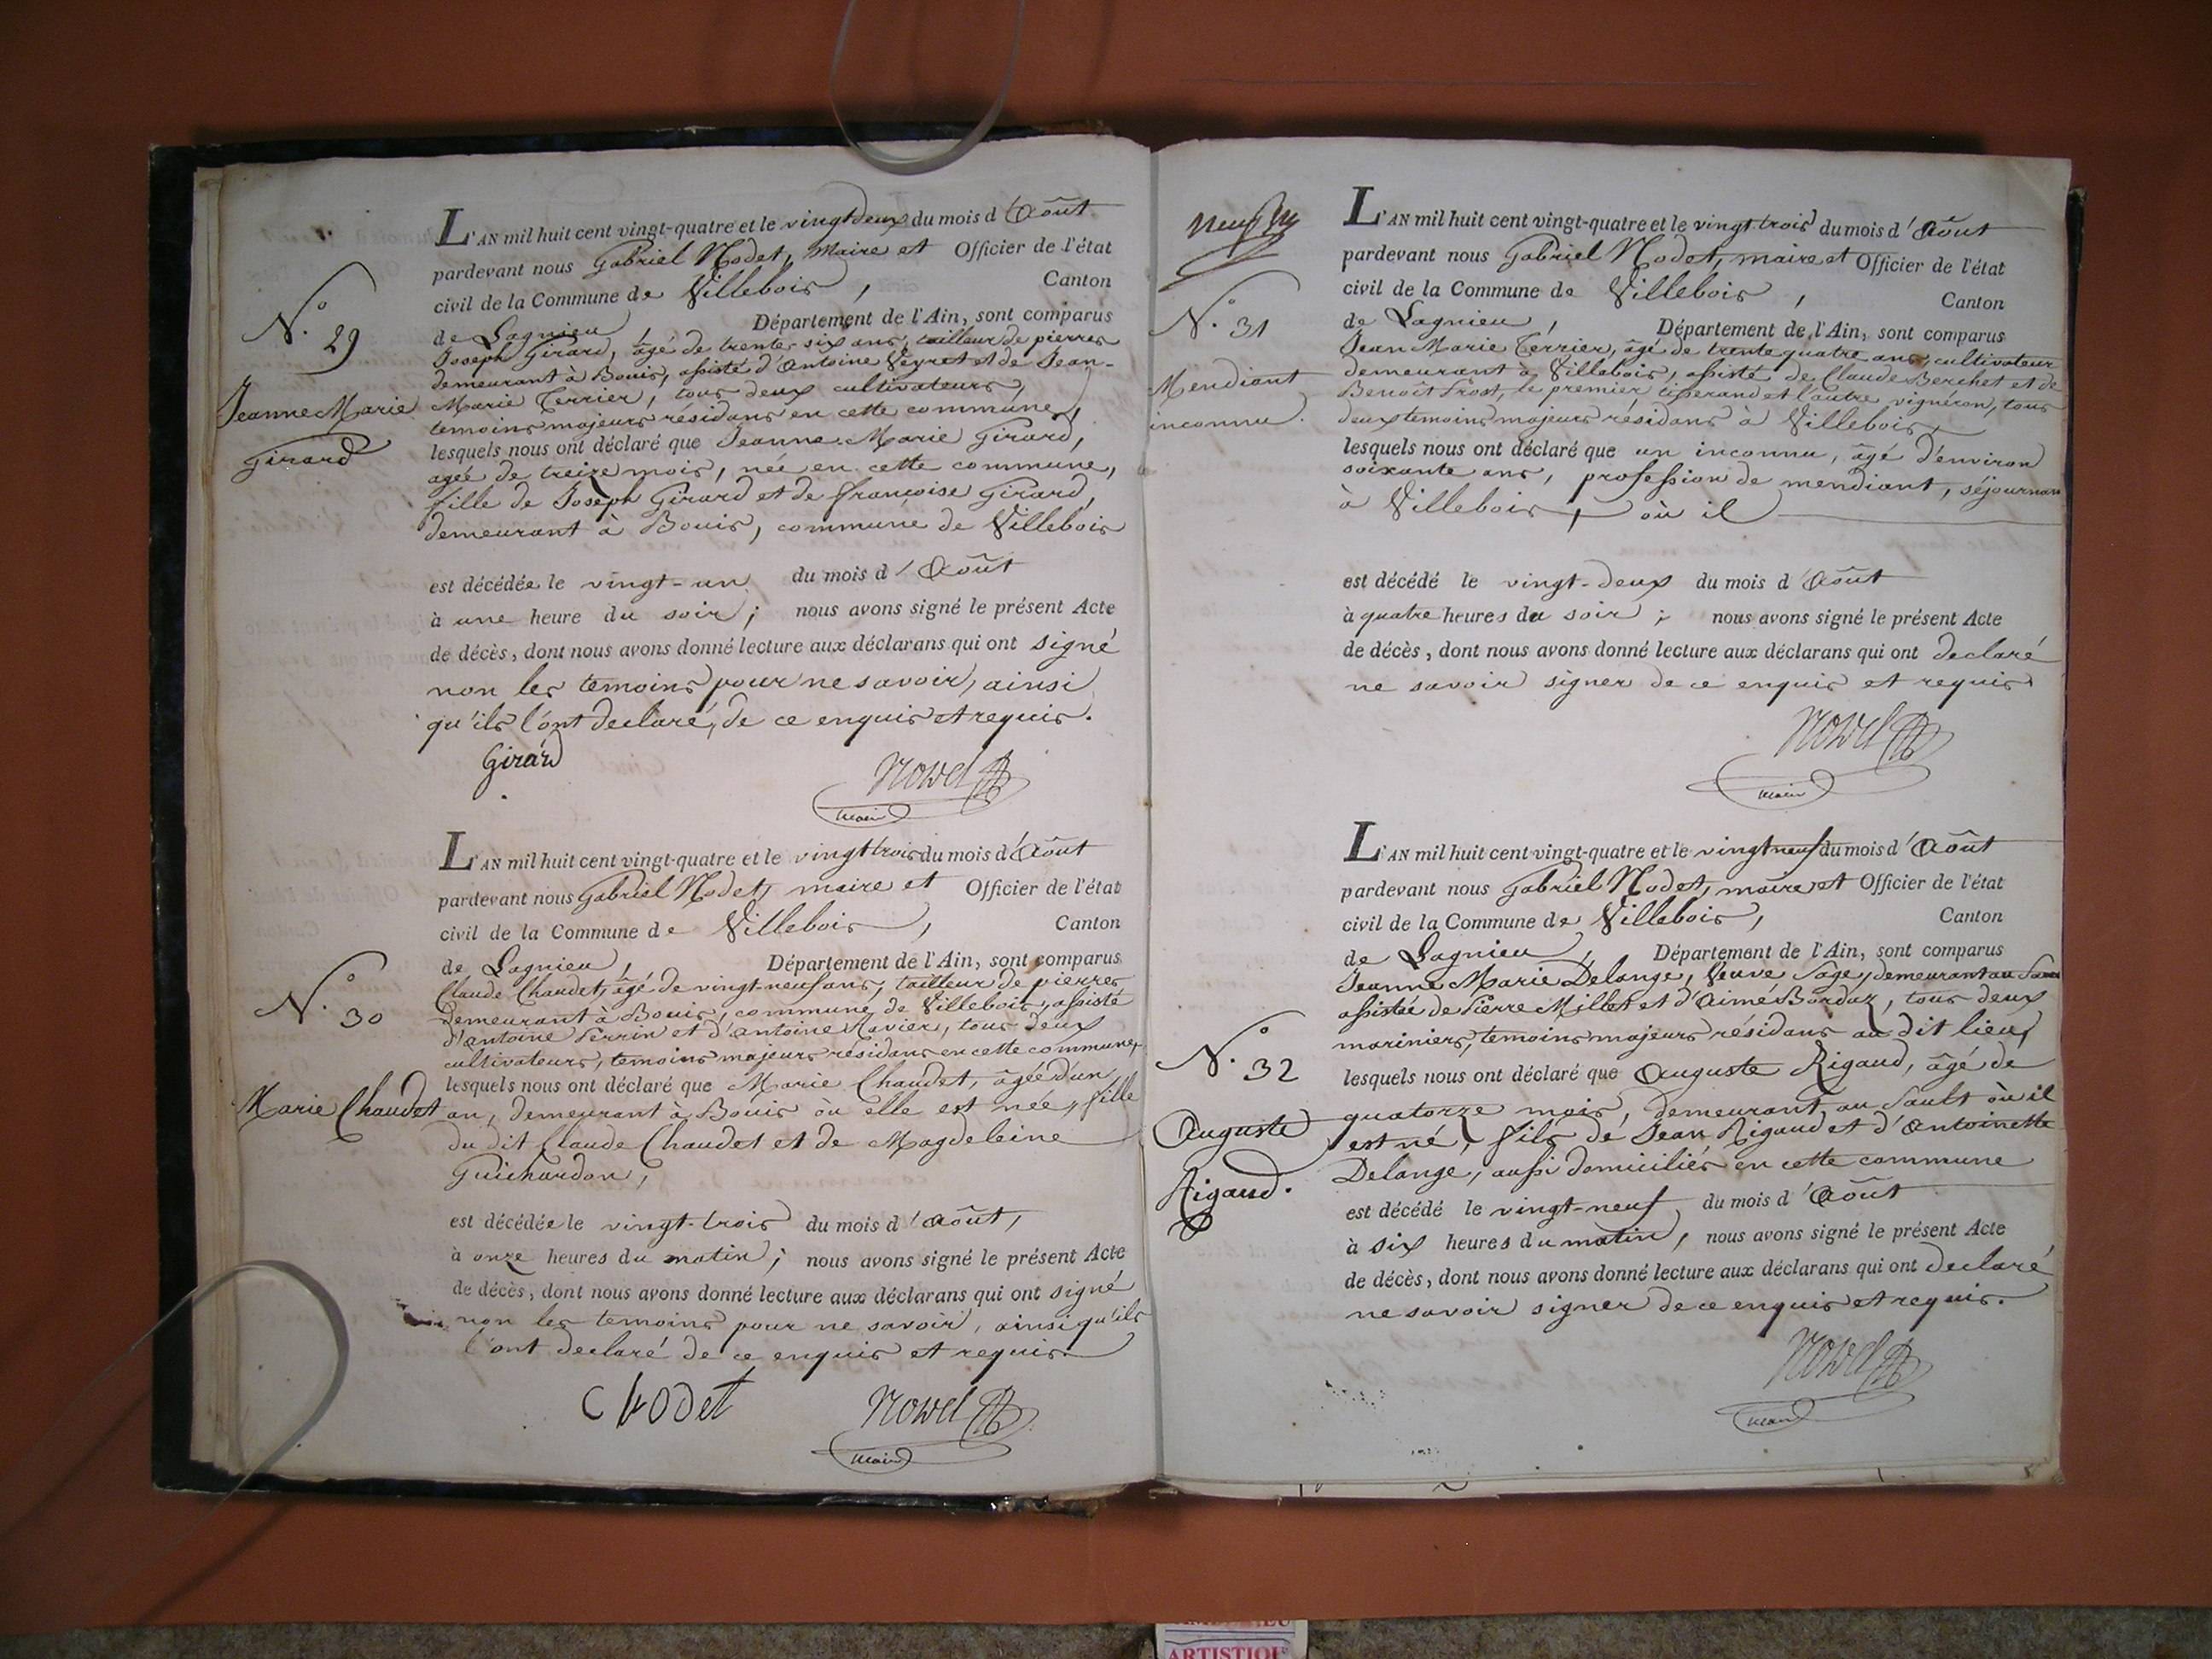 N.o 29
Jeanne Marie
Girard
L'AN mil huit cent vingt-quatre et le vingt deux du mois d'Août
pardevant nous Gabriel Nodet, Maire et Officier de l'état
civil de la Commune de Villebois, Canton
de Lagnieu, Département de l'Ain, sont comparus
Joseph Girard, âgé de trente six ans, tailleur de pierres
demeurant à Bouis, assisté d'Antoine Veyret et de Jean-
Marie Terrier, tous deux cultivateurs,
temoins majeurs résidans en cette commune,
lesquels nous ont déclaré que Jeanne Marie Girard,
agée de treize mois, née en cette commune,
fille de Joseph Girard et de françoise Girard,
demeurant à Bouis, commune de Villebois
est décédée le vingt-un du mois d'Août
à une heure du soir; nous avons signé le présent Acte
de décès, dont nous avons donné lecture aux déclarans qui ont signé
non les temoins pour ne savoir, ainsi
qu'ils l'ont declaré, de ce enquis et requis.
Girard
Nodet
maire
N.o 30
Marie Chaudet
L'AN mil huit cent vingt-quatre et le vingt trois du mois d'Août
pardevant nous Gabriel Nodet, maire et Officier de l'état
civil de la Commune de Villebois, Canton
de Lagnieu, Département de l'Ain, sont comparus
Claude Chaudet, âgé de vingt-neuf ans, tailleur de pierres
demeurant à Bouis, commune de Villebois, assisté
d'antoine Perrin et d'antoine Ravier, tous deux
cultivateurs, temoins majeurs résidans en cette commune,
lesquels nous ont déclaré que Marie Chaudet, âgée d'un
an, demeurant à Bouis où elle est née, fille
du dit Claude Chaudet et de Magdeleine
Guichardon,
est décédée le vingt-trois du mois d'Août,
à onze heures du matin; nous avons signé le présent Acte
de décès, dont nous avons donné lecture aux déclarans qui ont signé
non les temoins pour ne savoir, ainsi qu'ils
l'ont declaré de ce enquis et requis.
Chodet
Nodet
maire
neuf
N.o 31
Mendiant
inconnu.
L'AN mil huit cent vingt-quatre et le vingt trois du mois d'Août
pardevant nous Gabriel Nodet, maire et Officier de l'état
civil de la Commune de Villebois, Canton
de Lagnieu, Département de l'Ain, sont comparus
Jean Marie Terrier, âgé de trente quatre ans, cultivateur
demeurant à Villebois, assisté de Claude Berchet et de
Benoît Trost, le premier tisserand et l'autre vignéron, tous
deux temoins majeurs résidans à Villebois,
lesquels nous ont déclaré que un inconnu, âgé d'environ
soixante ans, profession de mendiant, séjournant
à Villebois, où il
est décédé le vingt-deux du mois d'Août
à quatre heures du soir; nous avons signé le présent Acte
de décès, dont nous avons donné lecture aux déclarans qui ont declaré
ne savoir signer de ce enquis et requis
Nodet
maire
N.o 32
Auguste
Rigaud.
L'AN mil huit cent vingt-quatre et le vingt neuf du mois d'Août
pardevant nous Gabriel Nodet, maire et Officier de l'état
civil de la Commune de Villebois, Canton
de Lagnieu, Département de l'Ain, sont comparus
Jeanne Marie Delange, Veuve Sage, demeurant au Sault
assistée de Pierre Millet et d'Aimé Bordaz, tous deux
mariniers, temoins majeurs résidans au dit lieu,
lesquels nous ont déclaré que Auguste Rigaud, âgé de
quatorze mois, demeurant au Sault où il
est né, fils de Jean Rigaud et d'Antoinette
Delange, aussi domiciliés en cette commune
est décédé le vingt-neuf du mois d'Août
à six heures du matin, nous avons signé le présent Acte
de décès, dont nous avons donné lecture aux déclarans qui ont declaré
ne savoir signer de ce enquis et requis.
Nodet
maire
ARTISTIQUE